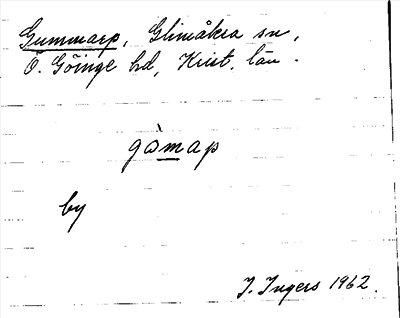 Gummarp, Glimåkra sn,
Ö. Göinge hd, Krist. län.
gòmap
by
I. Ingers 1962.